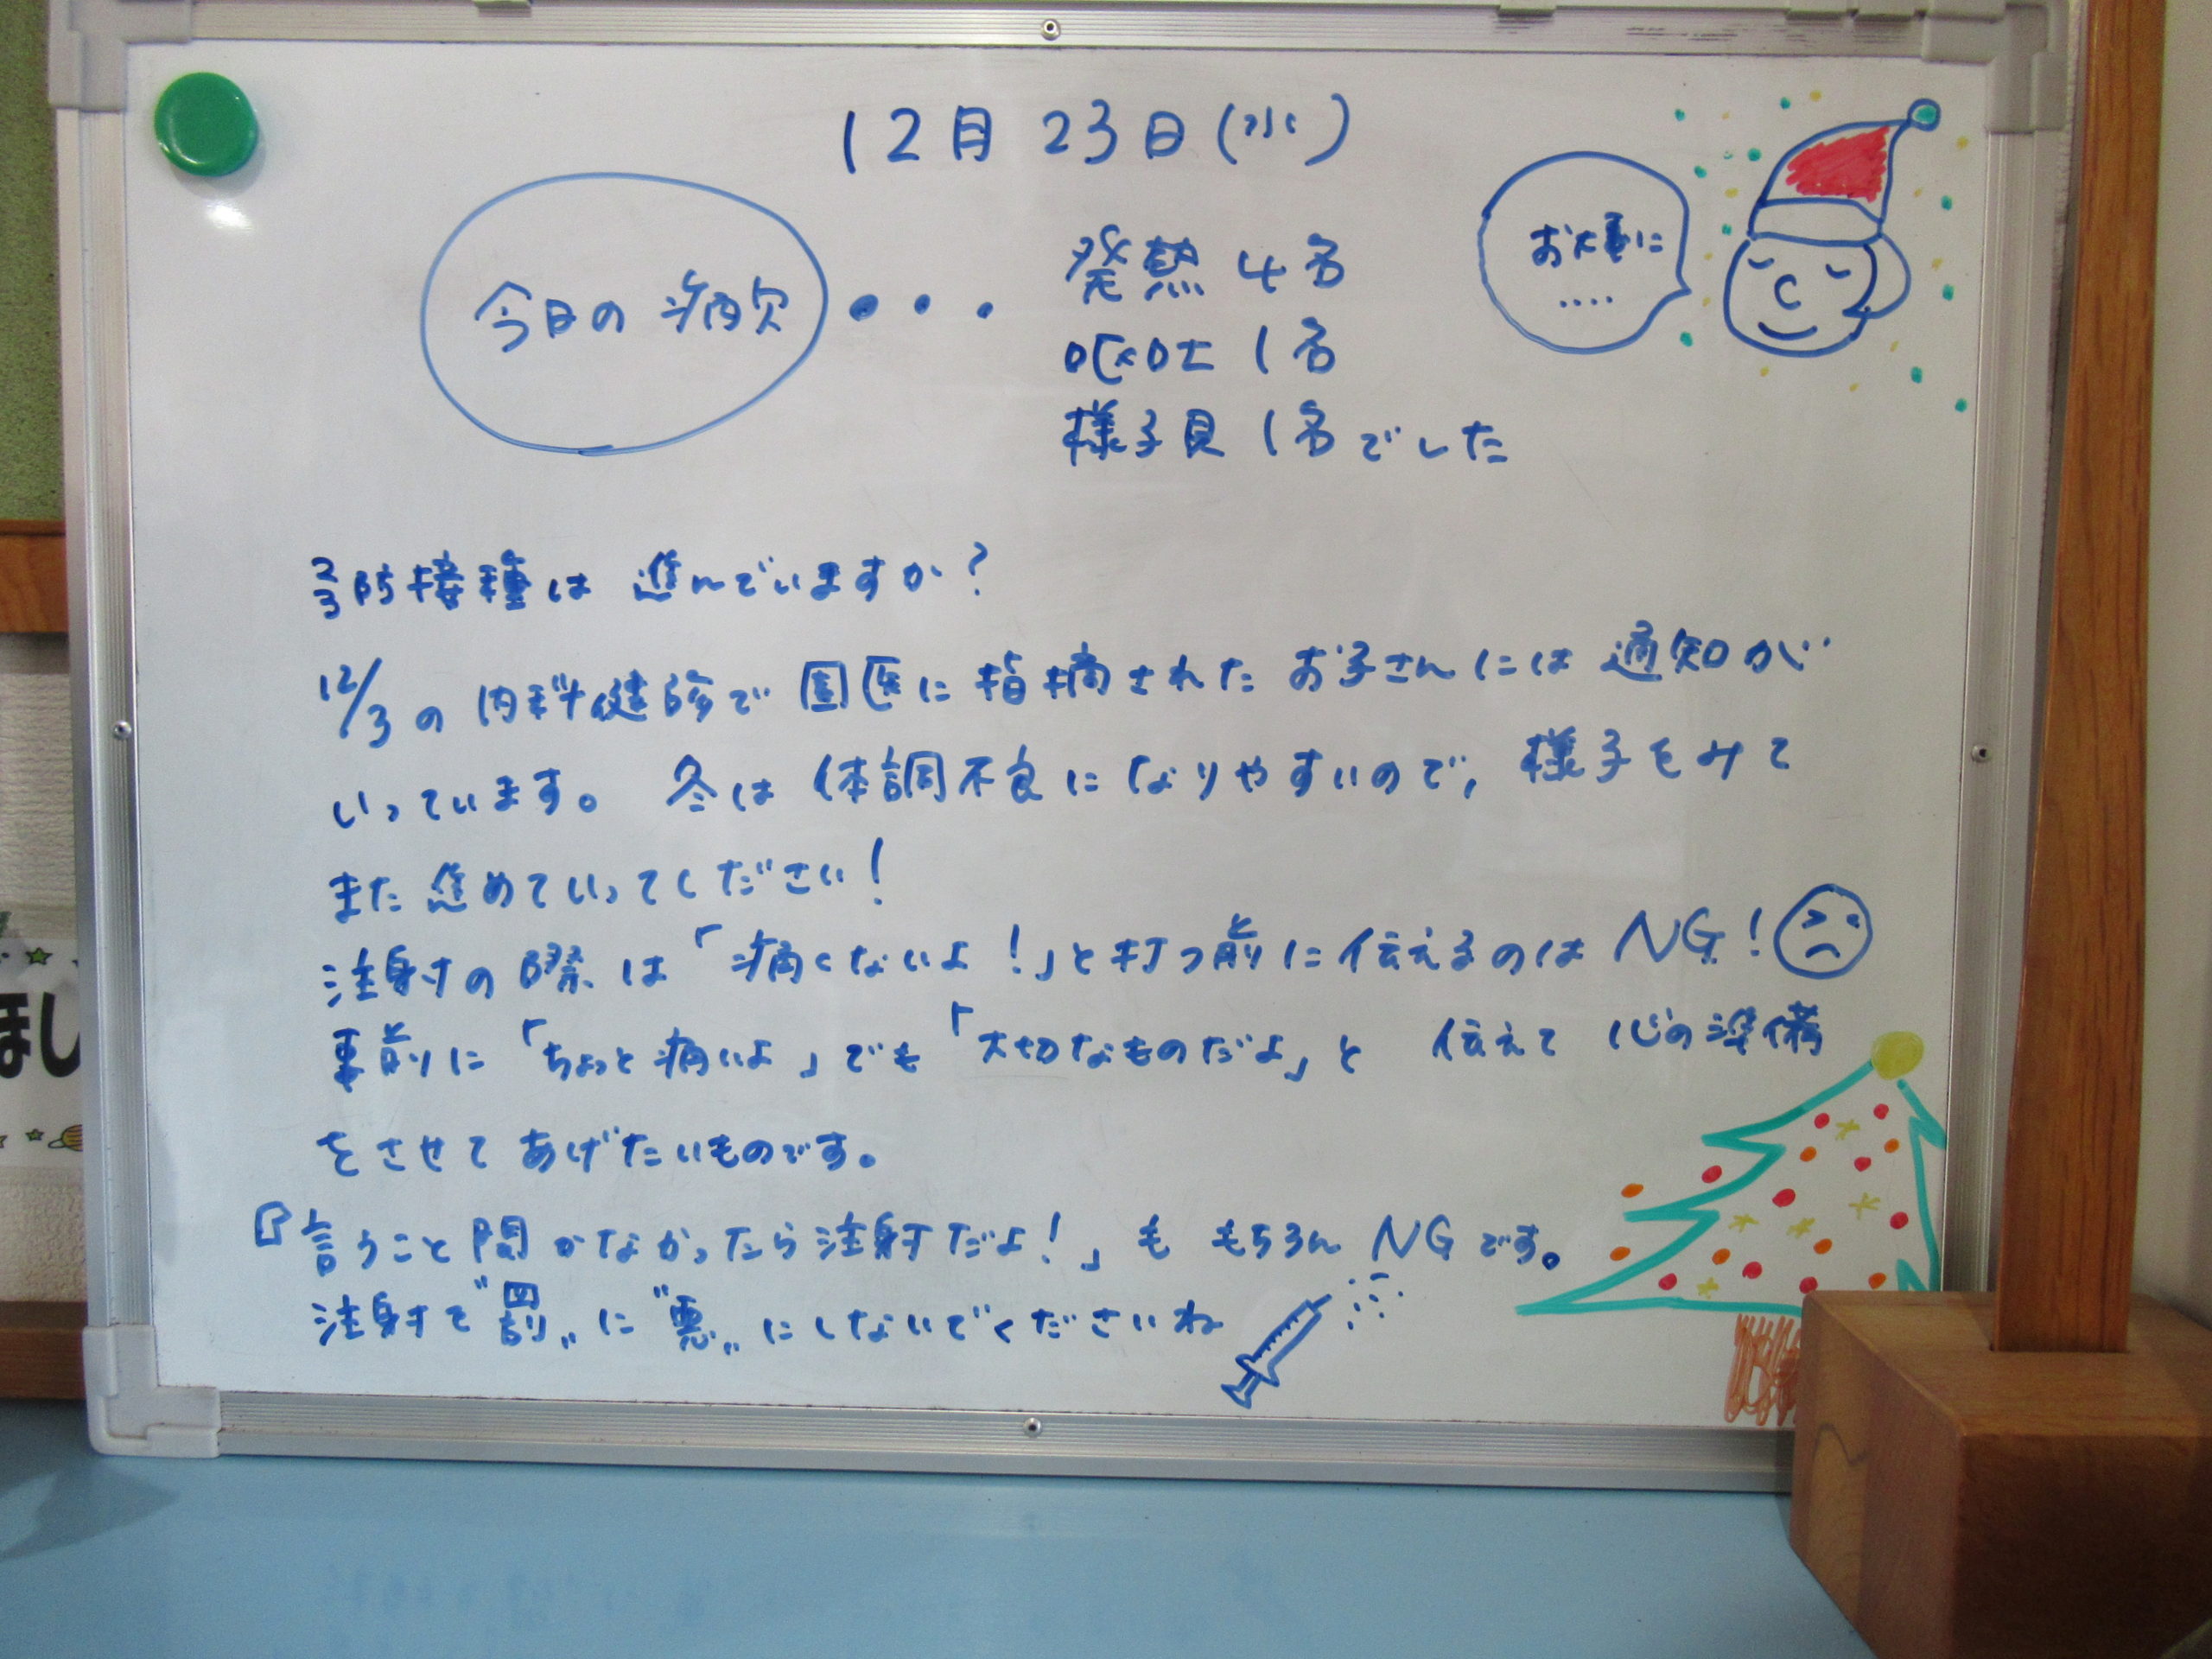 12月23日(水)
今日の病欠
・・・
発熱 4名
嘔吐 1名
様子見 1名でした
お大事に
‥‥
予防接種は 進んでいますか?
12/3の内科健診で園医に指摘されたお子さんには通知が
いっています。 冬は体調不良になりやすいので, 様子をみて
また進めていってください!
注射の際は「痛くないよ!」と打つ前に伝えるのはNG!
事前に「ちょっと痛いよ」でも「大切なものだよ」と 伝えて 心の準備
をさせてあげたいものです。
『言うこと聞かなかったら注射だよ!」も もちろんNGです。
注射を“罰„に“悪„にしないでくださいね
ほし